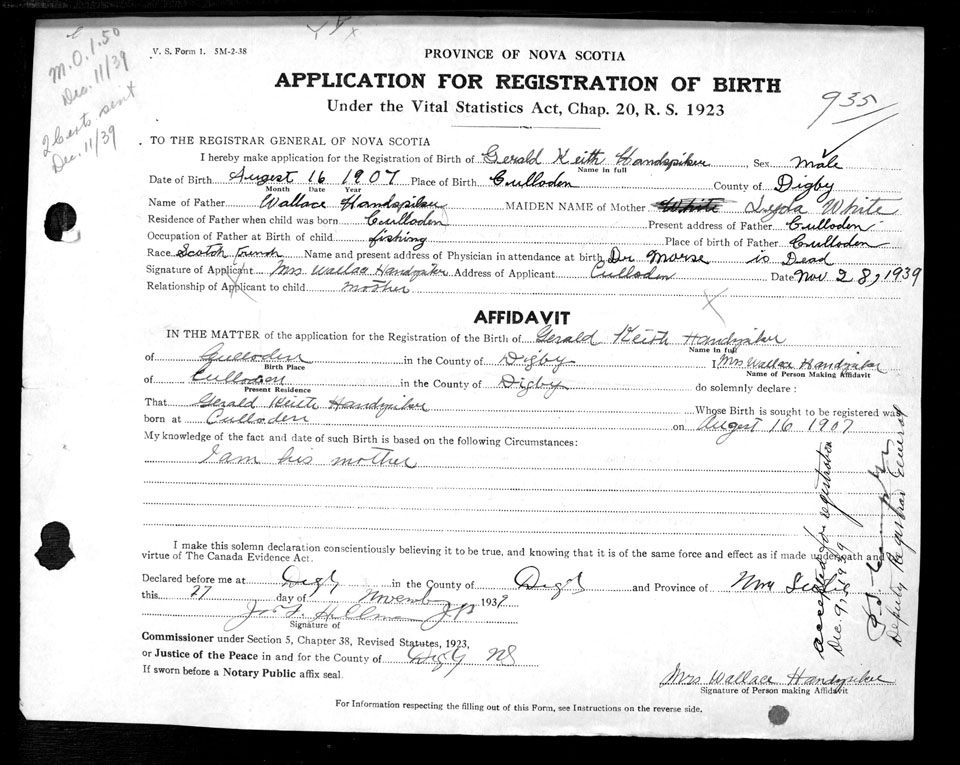 M.O. 1.50
Dec. 11/39
2 Certs sent
Dec. 11/39
V. S. Form 1. 5M-2-38
PROVINCE OF NOVA SCOTIA
APPLICATION FOR REGISTRATION OF BIRTH
Under the Vital Statistics Act, Chap. 20, R. S. 1923
935
TO THE REGISTRAR GENERAL OF NOVA SCOTIA
I hereby make application for the Registration of Birth of Gerald Keith Handspiker Sex Male
Name in full
Date of Birth August 16 1907 Place of Birth Culloden County of Digby
Month Date Year
Name of Father Wallace Handspiker MAIDEN NAME of Mother White White
Residence of Father when child was born Culloden Present address of Father Culloden
Occupation of Father at Birth of child fishing Place of birth of Father Culloden
Race Scotch French Name and present address of Physician in attendance at birth Dr Morse is Dead
Signature of Applicant Mrs Wallace Handspiker Address of Applicant Culloden Date Nov 28, 1939
Relationship of Applicant to child mother
AFFIDAVIT
IN THE MATTER of the application for the Registration of the Birth of Gerald Keith Handspiker
Name in full
of Culloden in the County of Digby I Mrs Wallace Handspiker
Birth Place Name of Person Making Affidavit
of Culloden in the County of Digby do solemnly declare :
Present Residence
That Gerald Keith Handspiker Whose Birth is sought to be registered was
born at Culloden on August 16 1907
My knowledge of the fact and date of such Birth is based on the following Circumstances:
I am his mother
I make this solemn declaration conscientiously believing it to be true, and knowing that it is of the same force and effect as if made under oath and
virtue of The Canada Evidence Act.
Declared before me at Digby in the County of Digby and Province of Nova Scotia
this 27 day of November 1939
Signature of
Commissioner under Section 5, Chapter 38, Revised Statutes, 1923,
or Justice of the Peace in and for the County of Digby NS
If sworn before a Notary Public affix seal.
Mrs Wallace Handspiker
Signature of Person making Affidavit
For Information respecting the filling out of this Form, see Instructions on the reverse side.
accepted for registration
Dec. 9, 1939
Deputy Registrar General